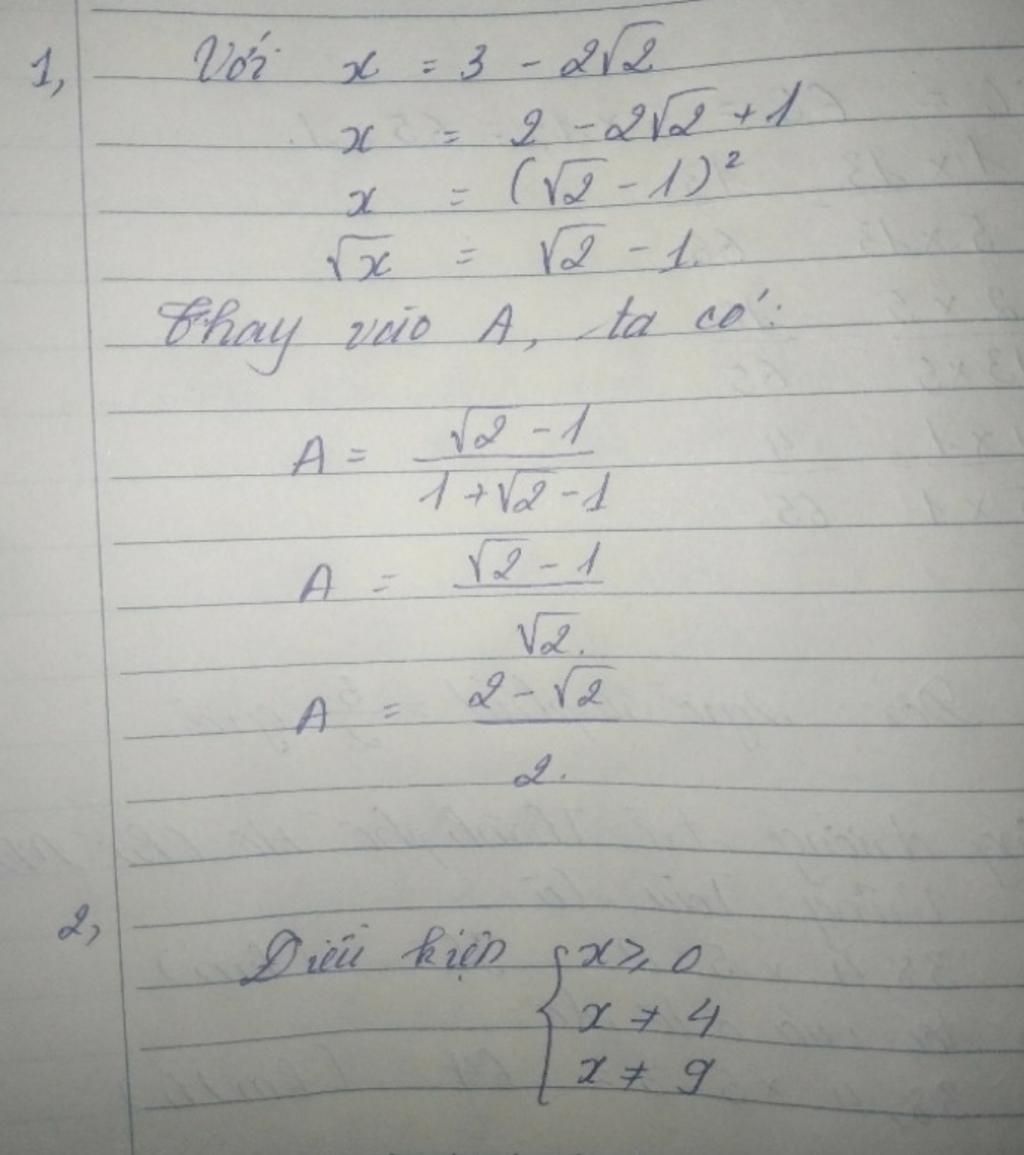 1, Với x = 3 - 2√2
x = 2 - 2√2 + 1
x = (√2 - 1)²
√x = √2 - 1.
Thay vào A, ta có:
A = (√2 - 1)/(1 + √2 - 1)
A = (√2 - 1)/√2.
A = (2 - √2)/2.
2, Điều kiện { x ≥ 0
x ≠ 4
x ≠ 9